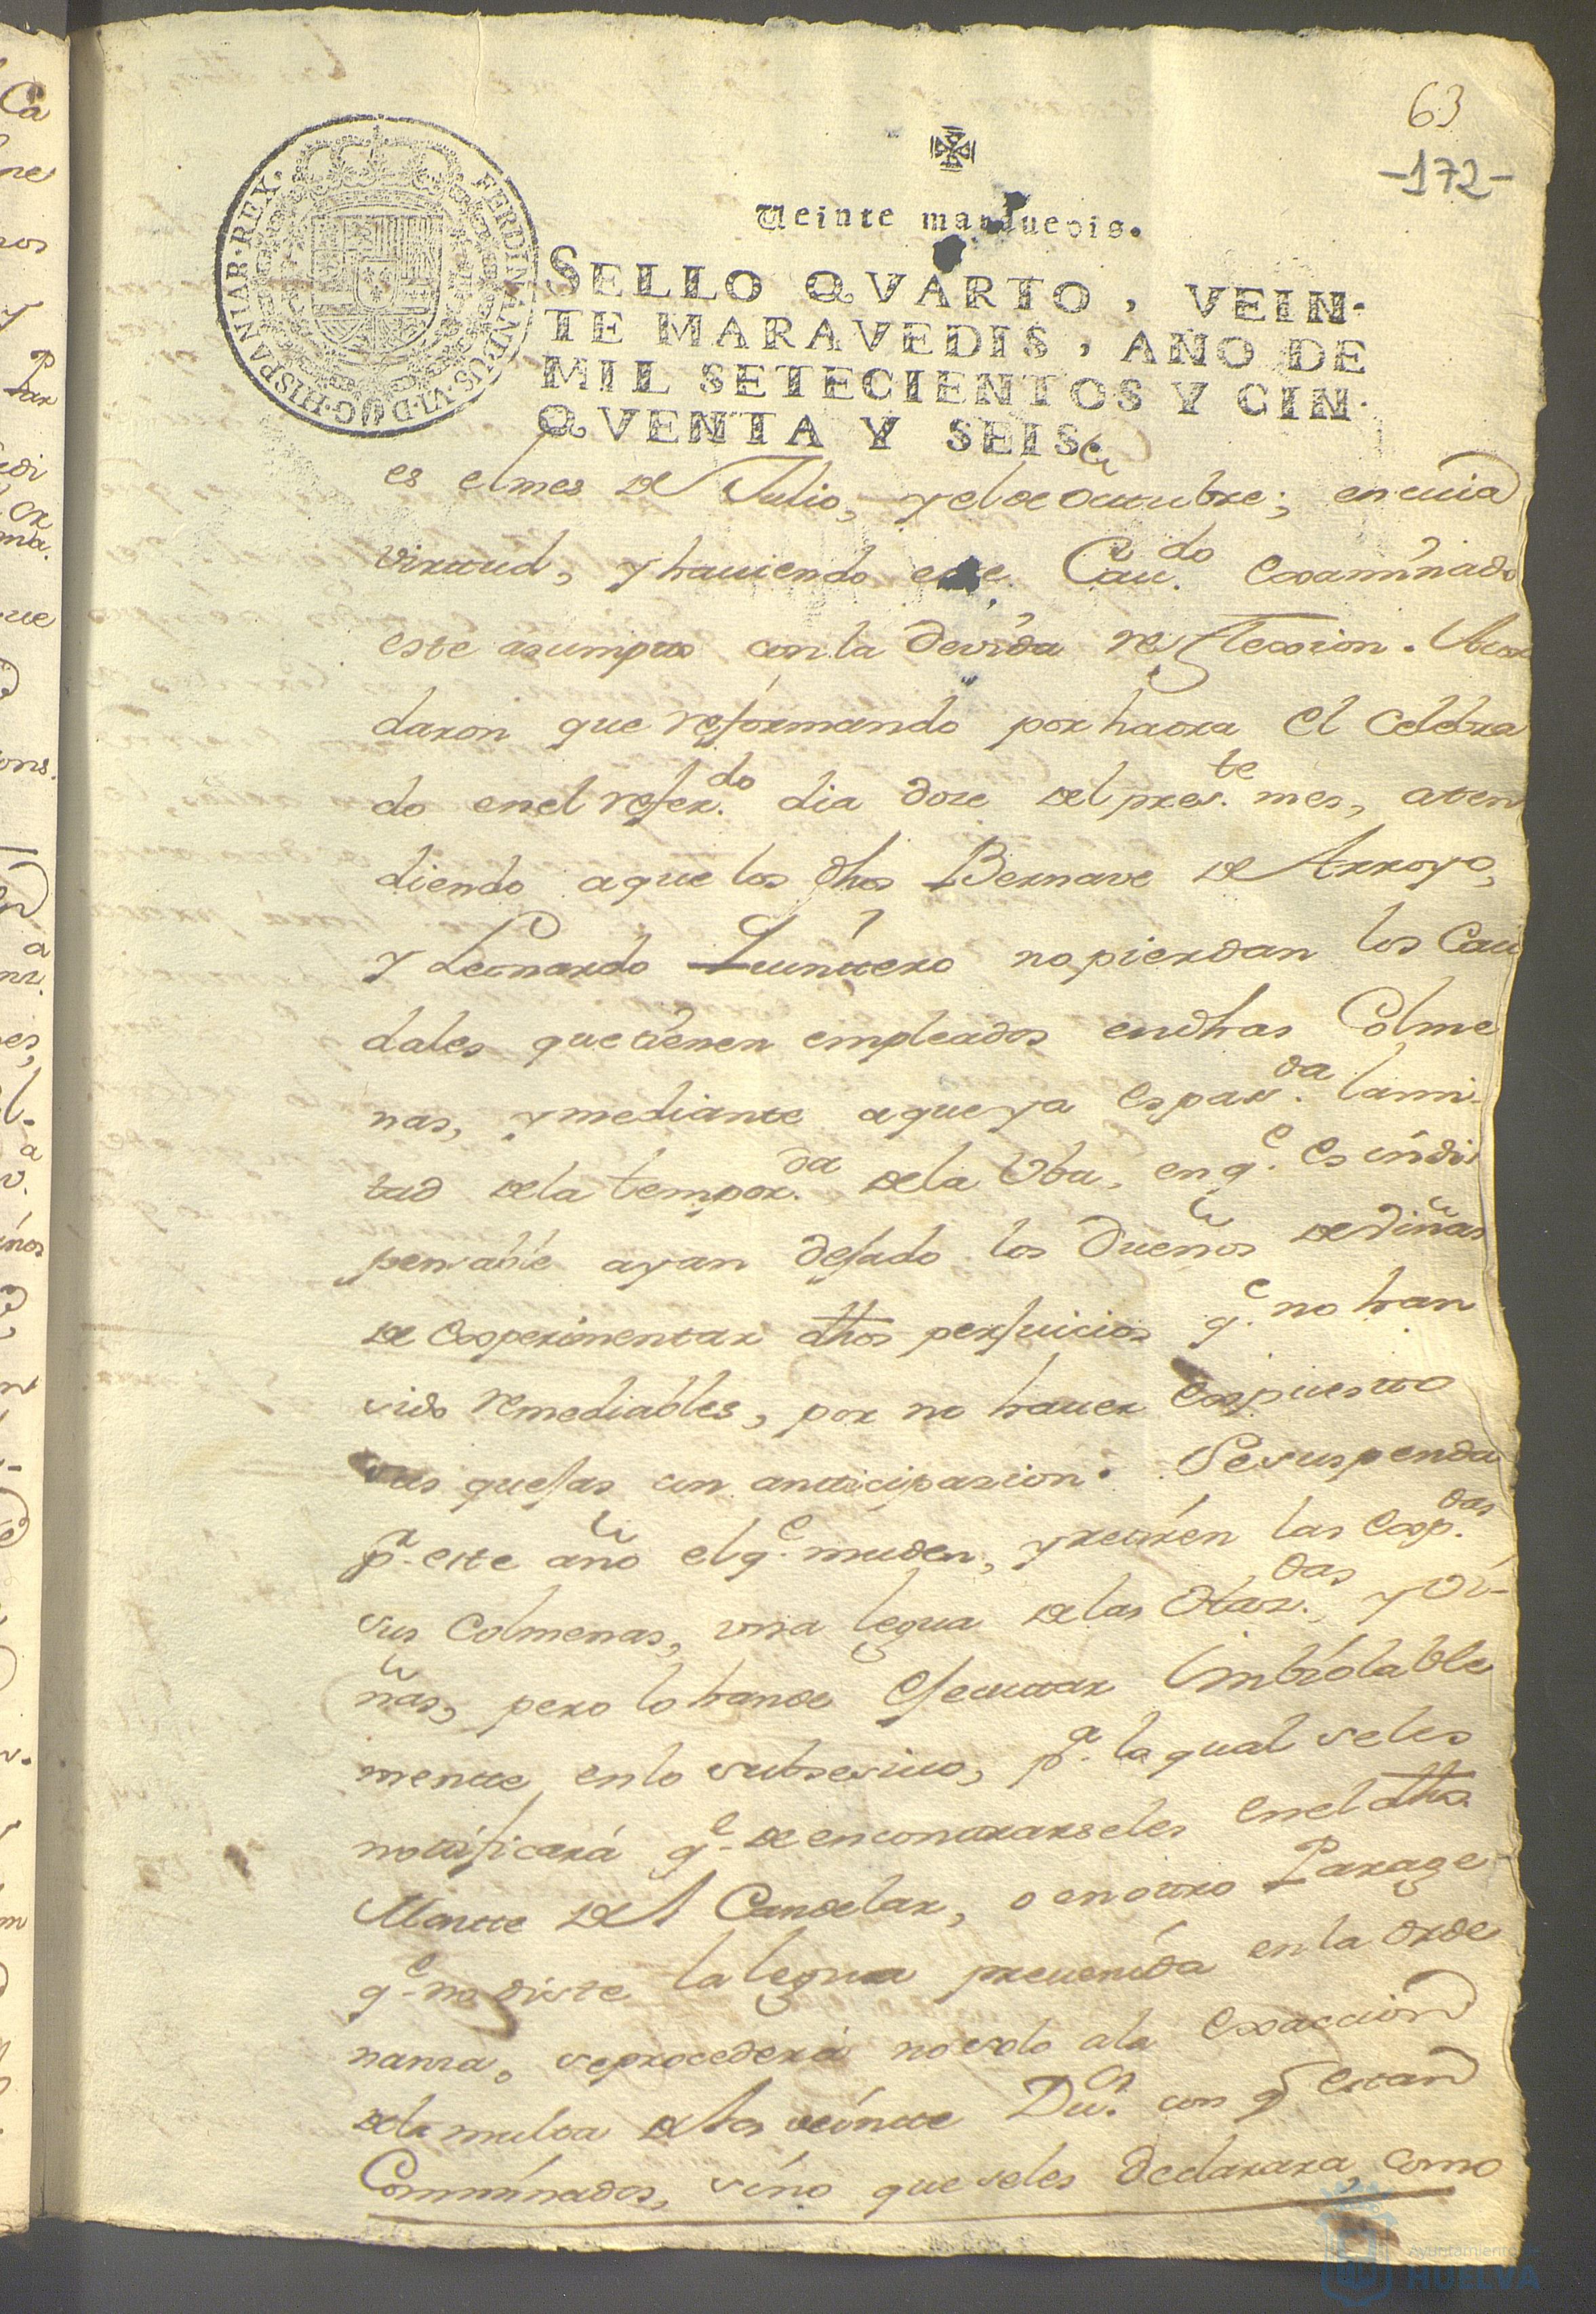 63
-172-
Veinte maravedis.
SELLO QVARTO, VEIN-
TE MARAVEDIS, AÑO DE
MIL SETECIENTOS Y CIN-
QVENTA Y SEIS.
FERDINANDUS·VI·D·G·HISPANIAR·REX·
es el mes de Julio, y el de Octtubre; en cuia
virttud, y haviendo este Cav.do examinado
este asumpto con la devida reflexion. Acor
daron que reformando por haora el celebra
do en el refer.do dia doze del pres.te mes, aten
diendo a que los dhos Bernave de Arroyo,
y Leonardo Quinttero no pierdan los Cau
dales que tienen empleados en dhas Colme
nas, y mediante a que ya es pas.da la mi
tad de la tempor.da de la Uba, en q.e es indis
pensable ayan dejado los Dueños de Viñas
de experimentar dhos perjuicios q.e no han
sido remediables, por no haver expuestto
sus quejas con antticipazion. Se suspenda
p.a este año el q.e muden, y retiren las exp.das
sus Colmenas, una legua de las Haz.das, y Vi-
ñas, pero lo han de ejecuttar imbiolable
mentte en lo subsesivo, p.a lo qual se les
nottificará q.e de encontrarseles en el dho
Montte del Candelar, o en ottro Parage
q.e no diste la legua prevenida en la orde
nanza, se procederá no solo a la exaccion
de la multa de los veintte Du.s con q.e estan
Comminados, sino que se les declarara, como
Ayuntamiento de
HUELVA